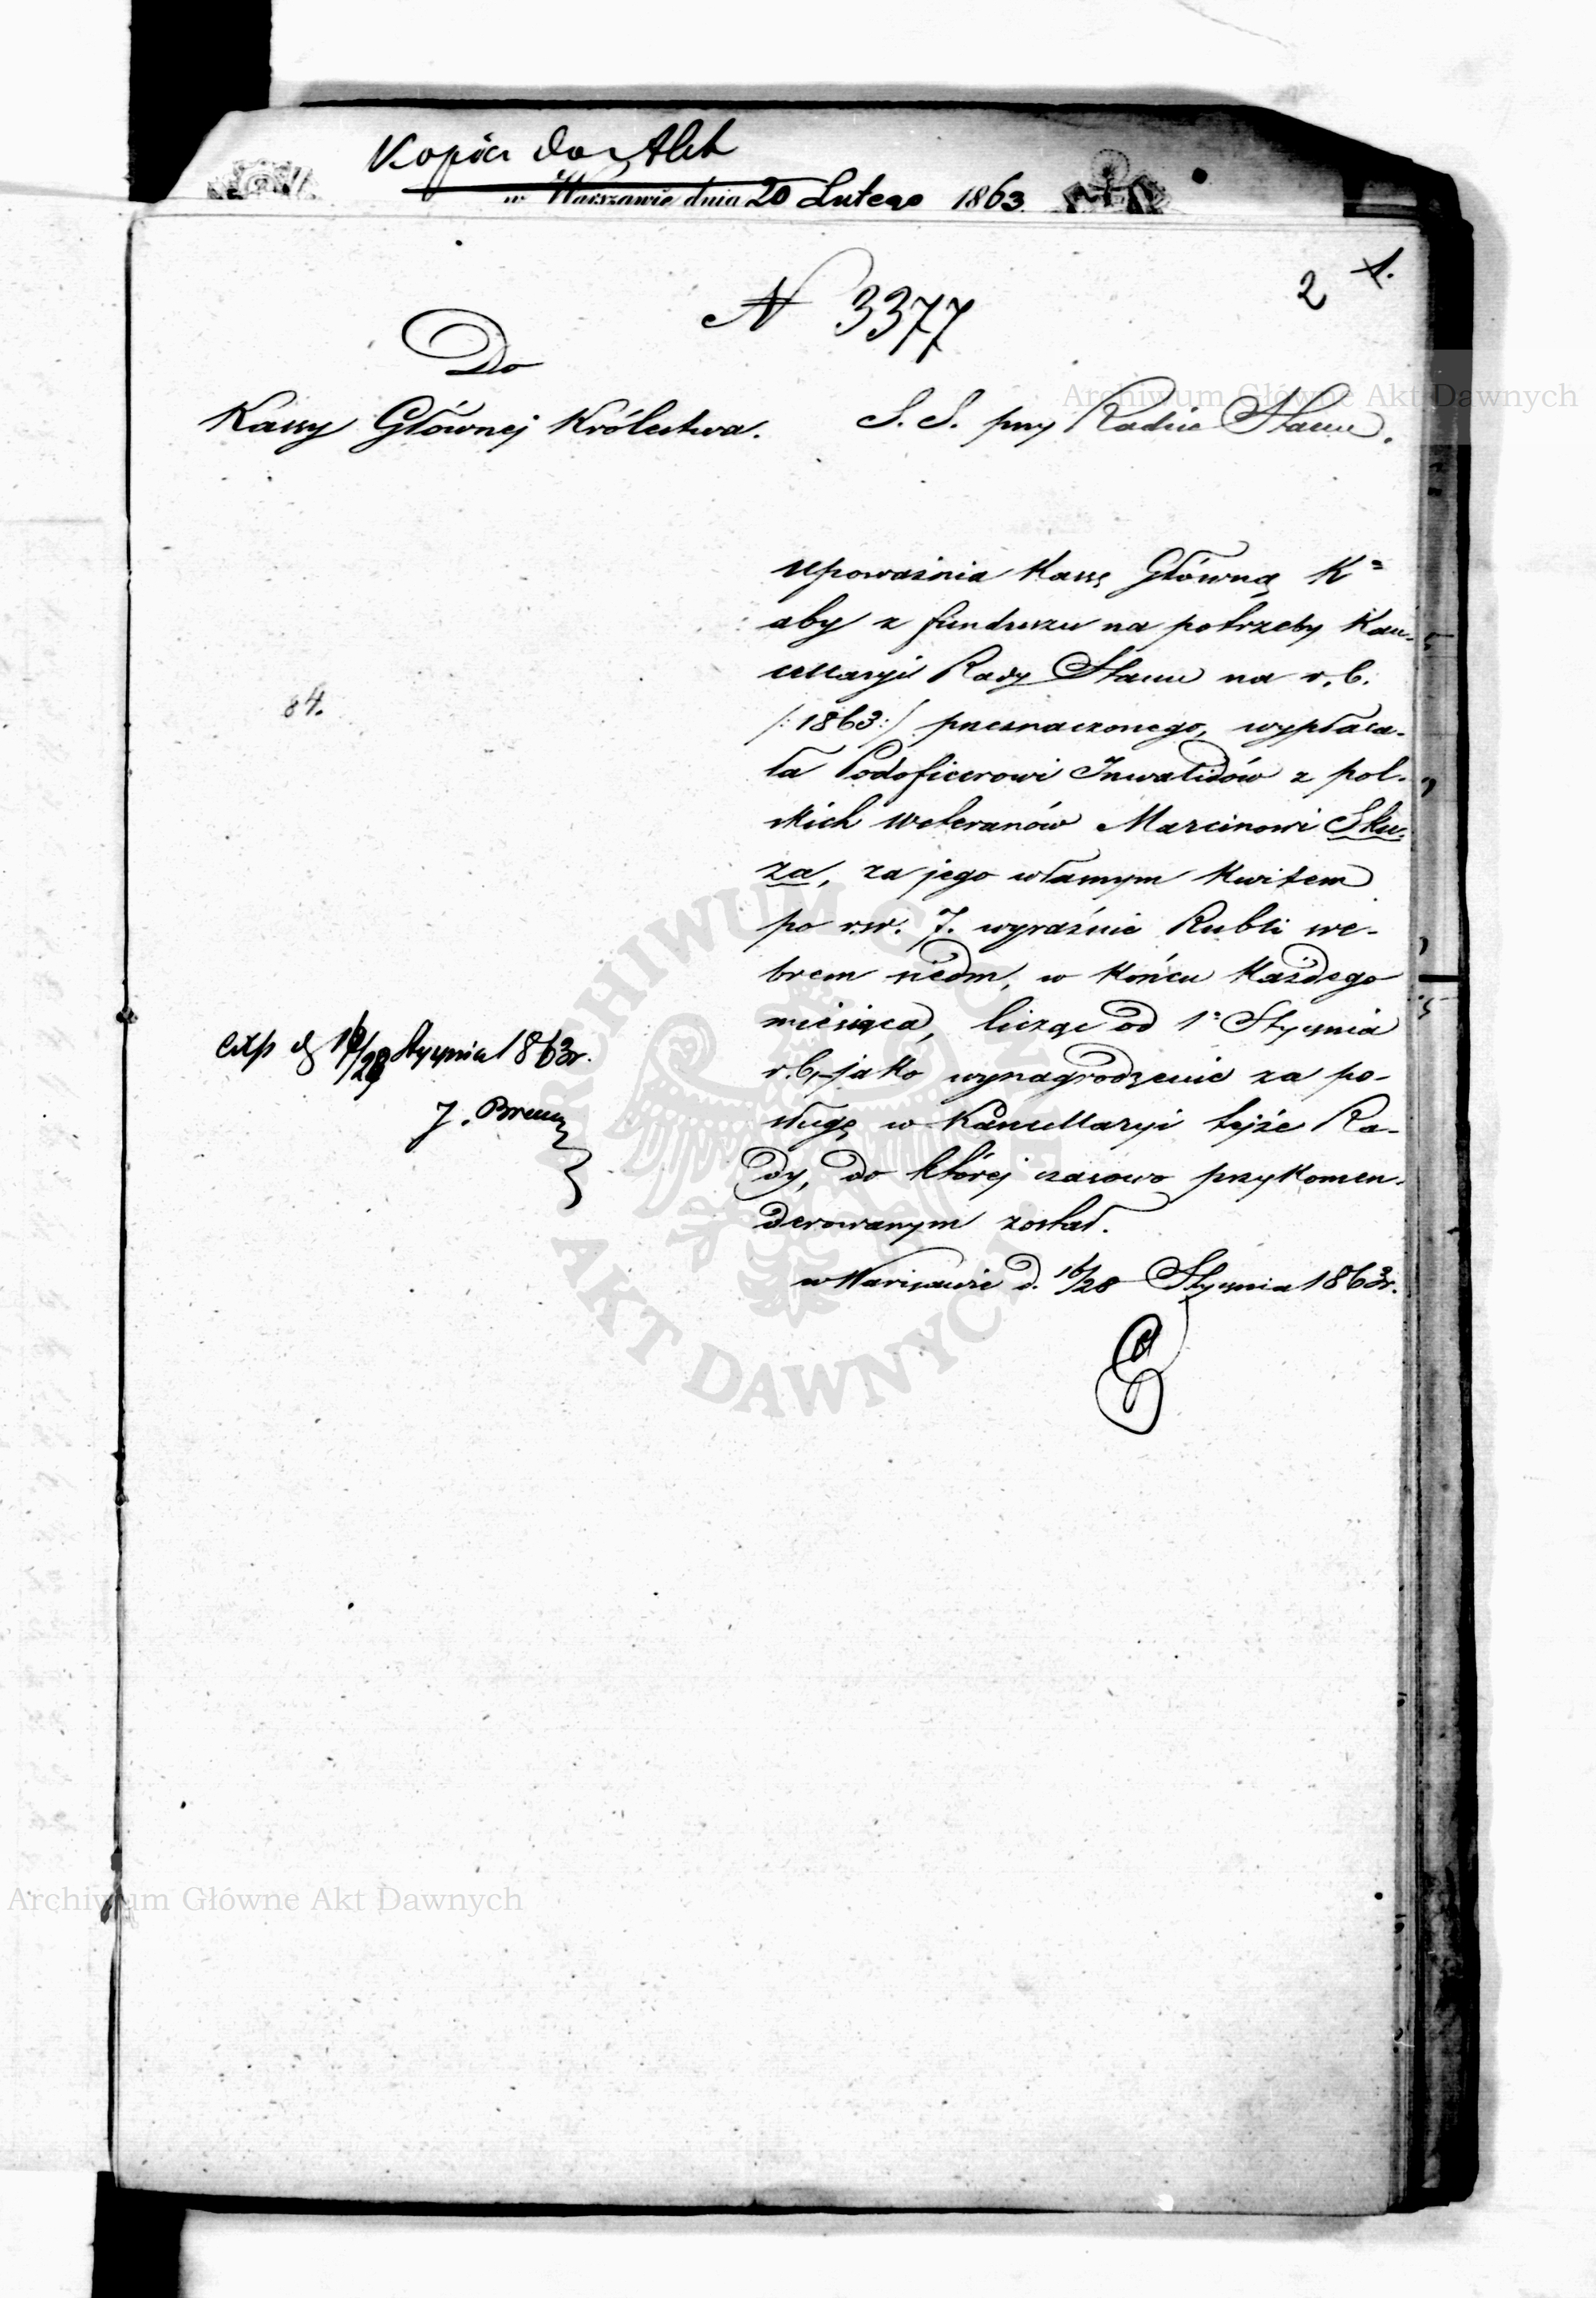 Kopia do Akt
w Warszawie dnia 20 Lutego 1863.
2 1.
N 3377
Do
Kassy Głównej Królestwa.
S. S. przy Radzie Stanu.
upoważnia Kassę Główną K=
aby z funduszu na potrzeby Kan-
cellaryi Rady Stanu na r. b.
/:1863:/ przeznaczonego, wypłaca-
ła Podoficerowi Inwalidów z pol-
skich Weteranów Marcinowi Sku-
za, za jego własnym Kwitem
po rsr. 7. wyraźnie Rubli sre-
brem siedm, w końcu Każdego
miesiąca, licząc od 1° Stycznia
r. b. jako wynagrodzenie za po-
sługę w Kancellaryi tejże Ra-
dy, do której czasowo przykomen-
derowanym został.
w Warszawie d. 16/28 Stycznia 1863r.
84.
Exp d 16/28 Stycznia 1863r.
J.
Archiwum Główne Akt Dawnych
ARCHIWUM GŁÓWNE
AKT DAWNYCH
Archiwum Główne Akt Dawnych